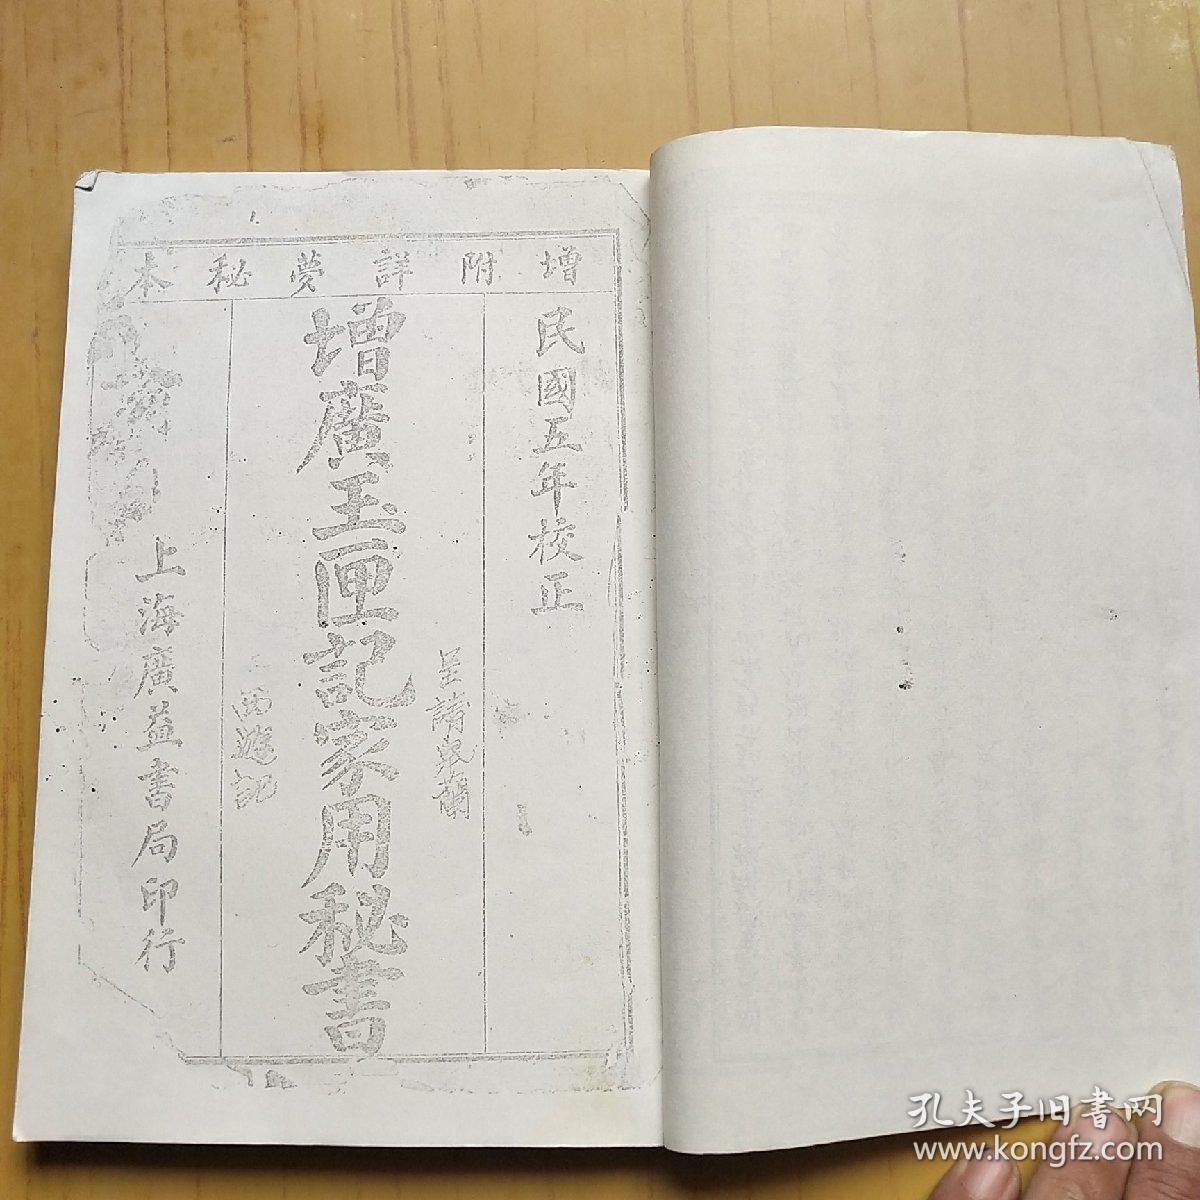 增附詳夢秘本
民國五年校正
增廣玉匣記家用秘書
西遊記
上海廣益書局印行
孔夫子旧书网
www.kongfz.com